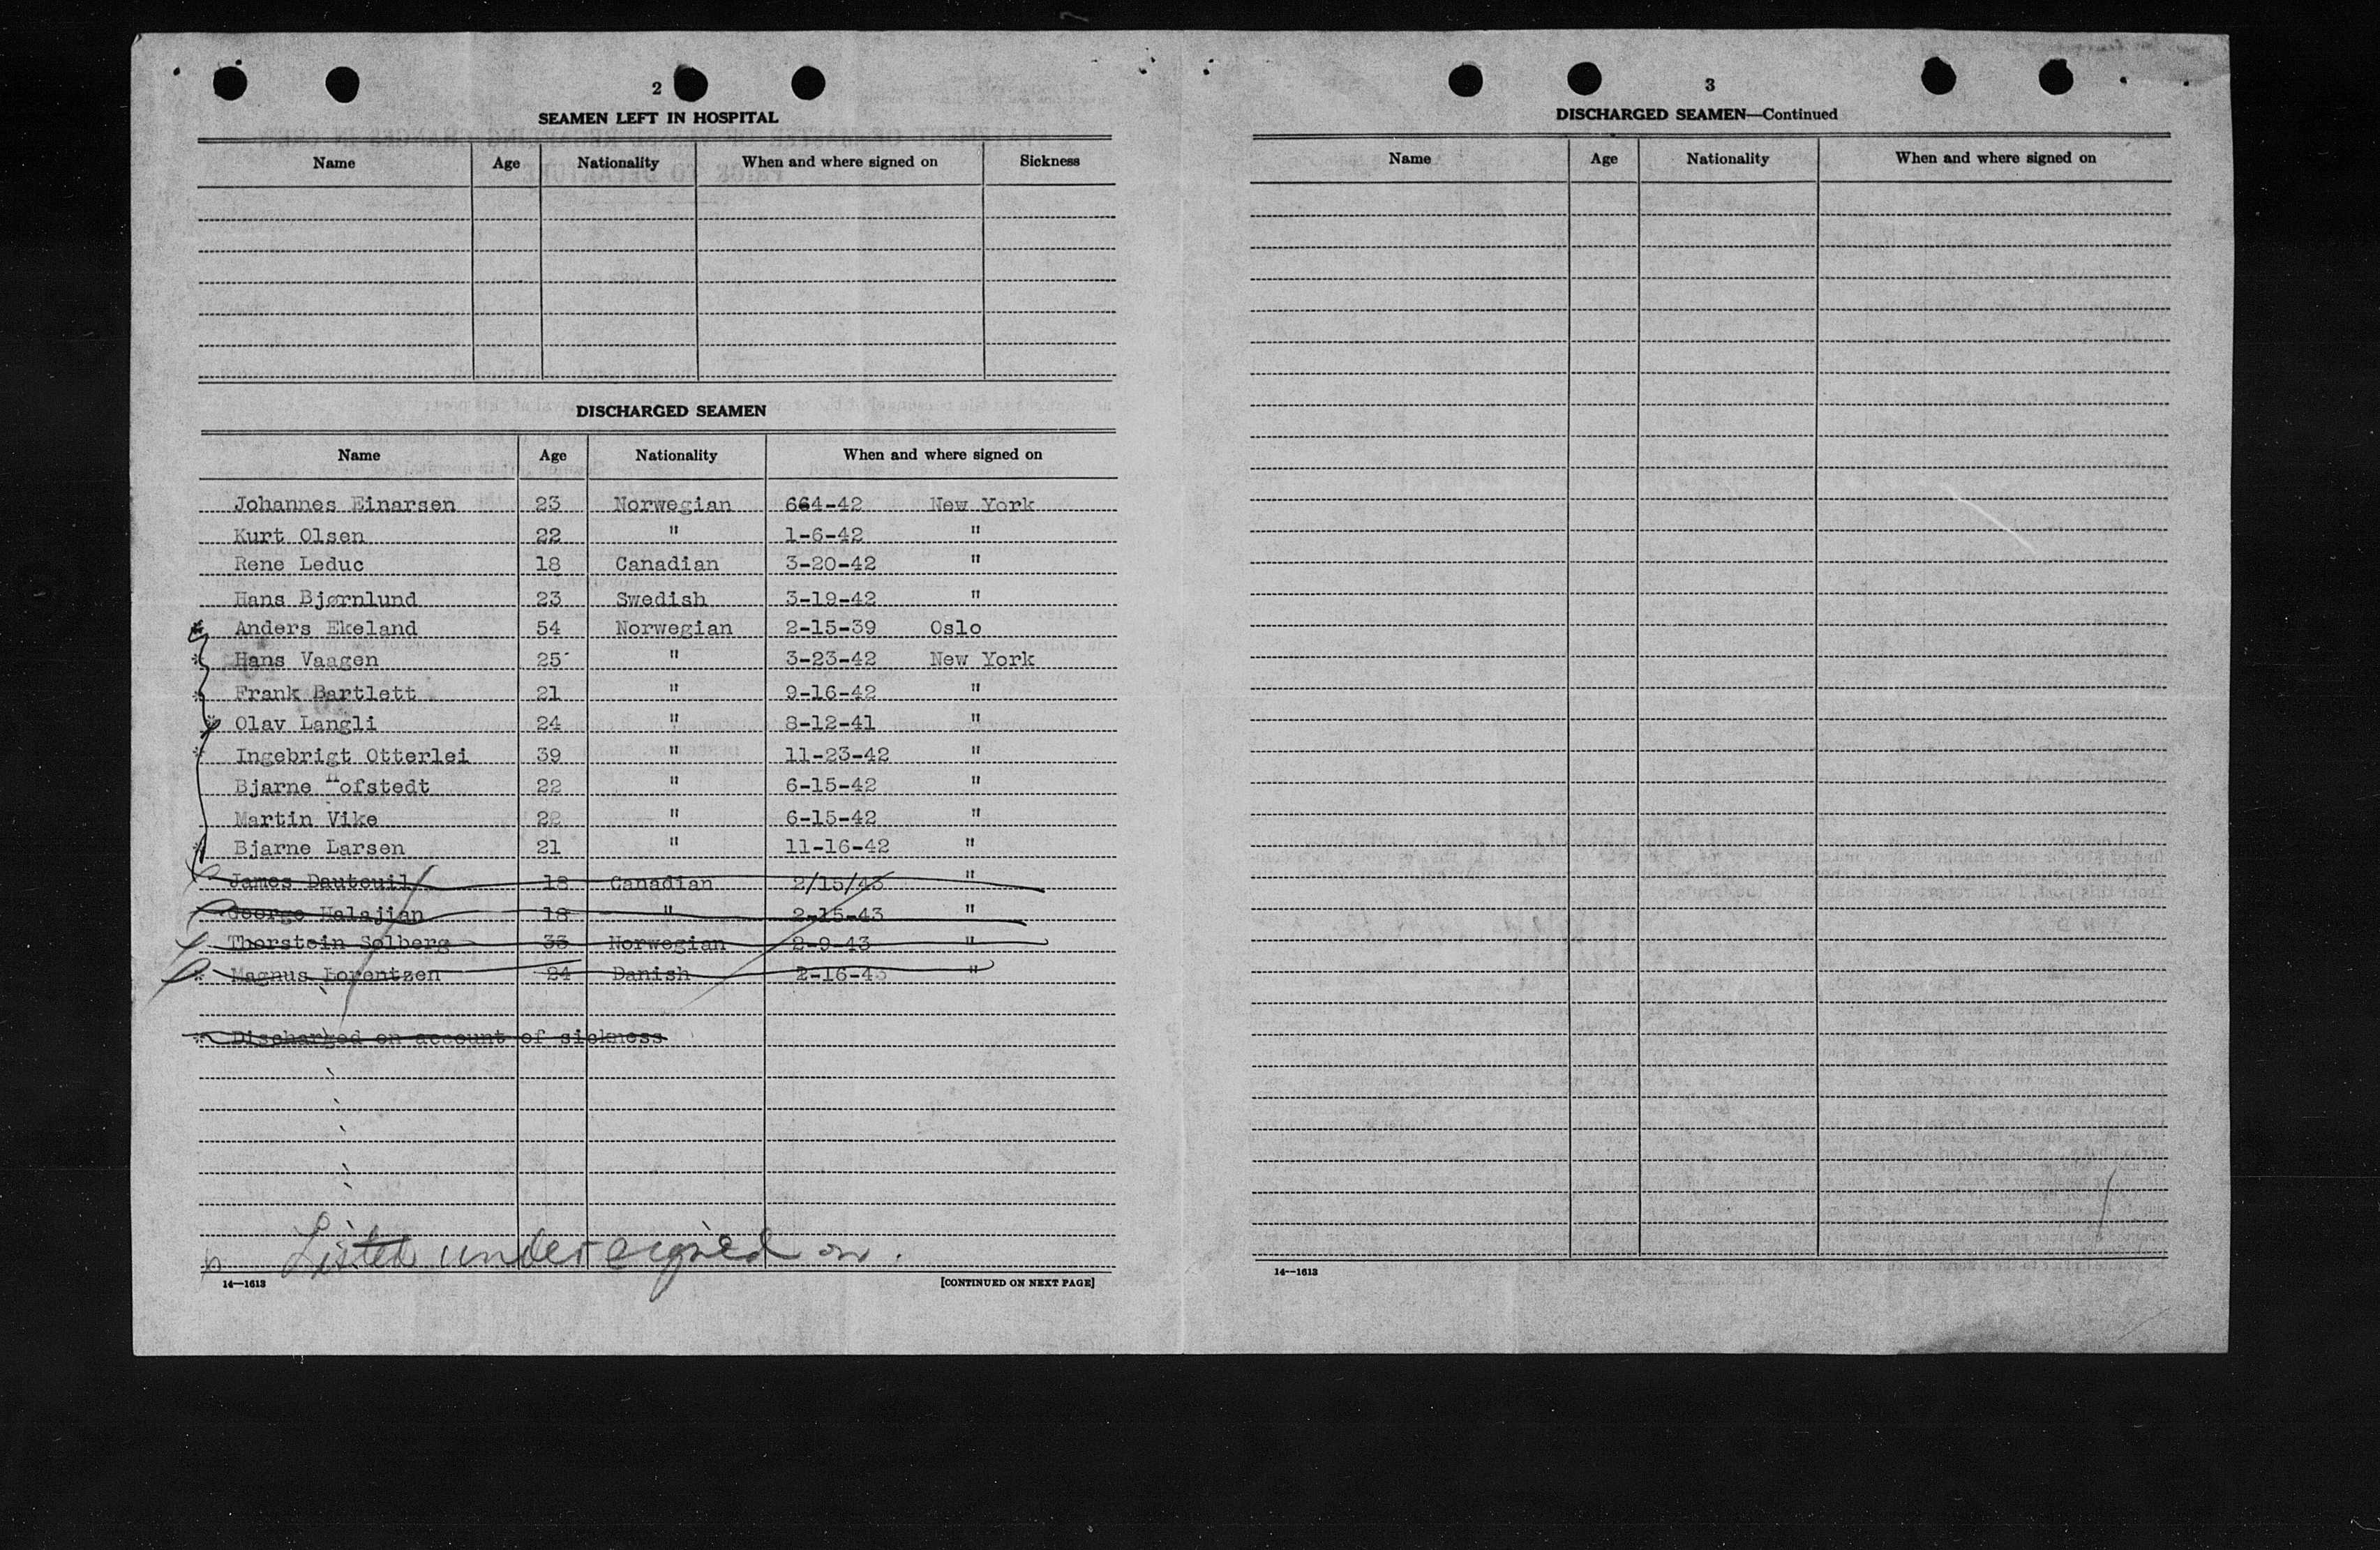 2
SEAMEN LEFT IN HOSPITAL
Name Age Nationality When and where signed on Sickness
DISCHARGED SEAMEN
Name Age Nationality When and where signed on
Johannes Einarsen 23 Norwegian 664-42 New York
Kurt Olsen 22 " 1-6-42 "
Rene Leduc 18 Canadian 3-20-42 "
Hans Bjørnlund 23 Swedish 3-19-42 "
* Anders Ekeland 54 Norwegian 2-15-39 Oslo
* Hans Vaagen 25 " 3-23-42 New York
* Frank Bartlett 21 " 9-16-42 "
* Olav Langli 24 " 8-12-41 "
* Ingebrigt Otterlei 39 " 11-23-42 "
Bjarne Hofstedt 22 " 6-15-42 "
Martin Vike 22 " 6-15-42 "
* Bjarne Larsen 21 " 11-16-42 "
James Dauteuil 18 Canadian 2/15/43 "
George Halajian 18 " 2-15-43 "
Thorstein Solberg 33 Norwegian 2-9-43 "
* Magnus Lorentzen 24 Danish 2-16-43 "
* Discharged on account of sickness
Listed under signed on.
14—1613 [CONTINUED ON NEXT PAGE]
3
DISCHARGED SEAMEN—Continued
Name Age Nationality When and where signed on
14—1613